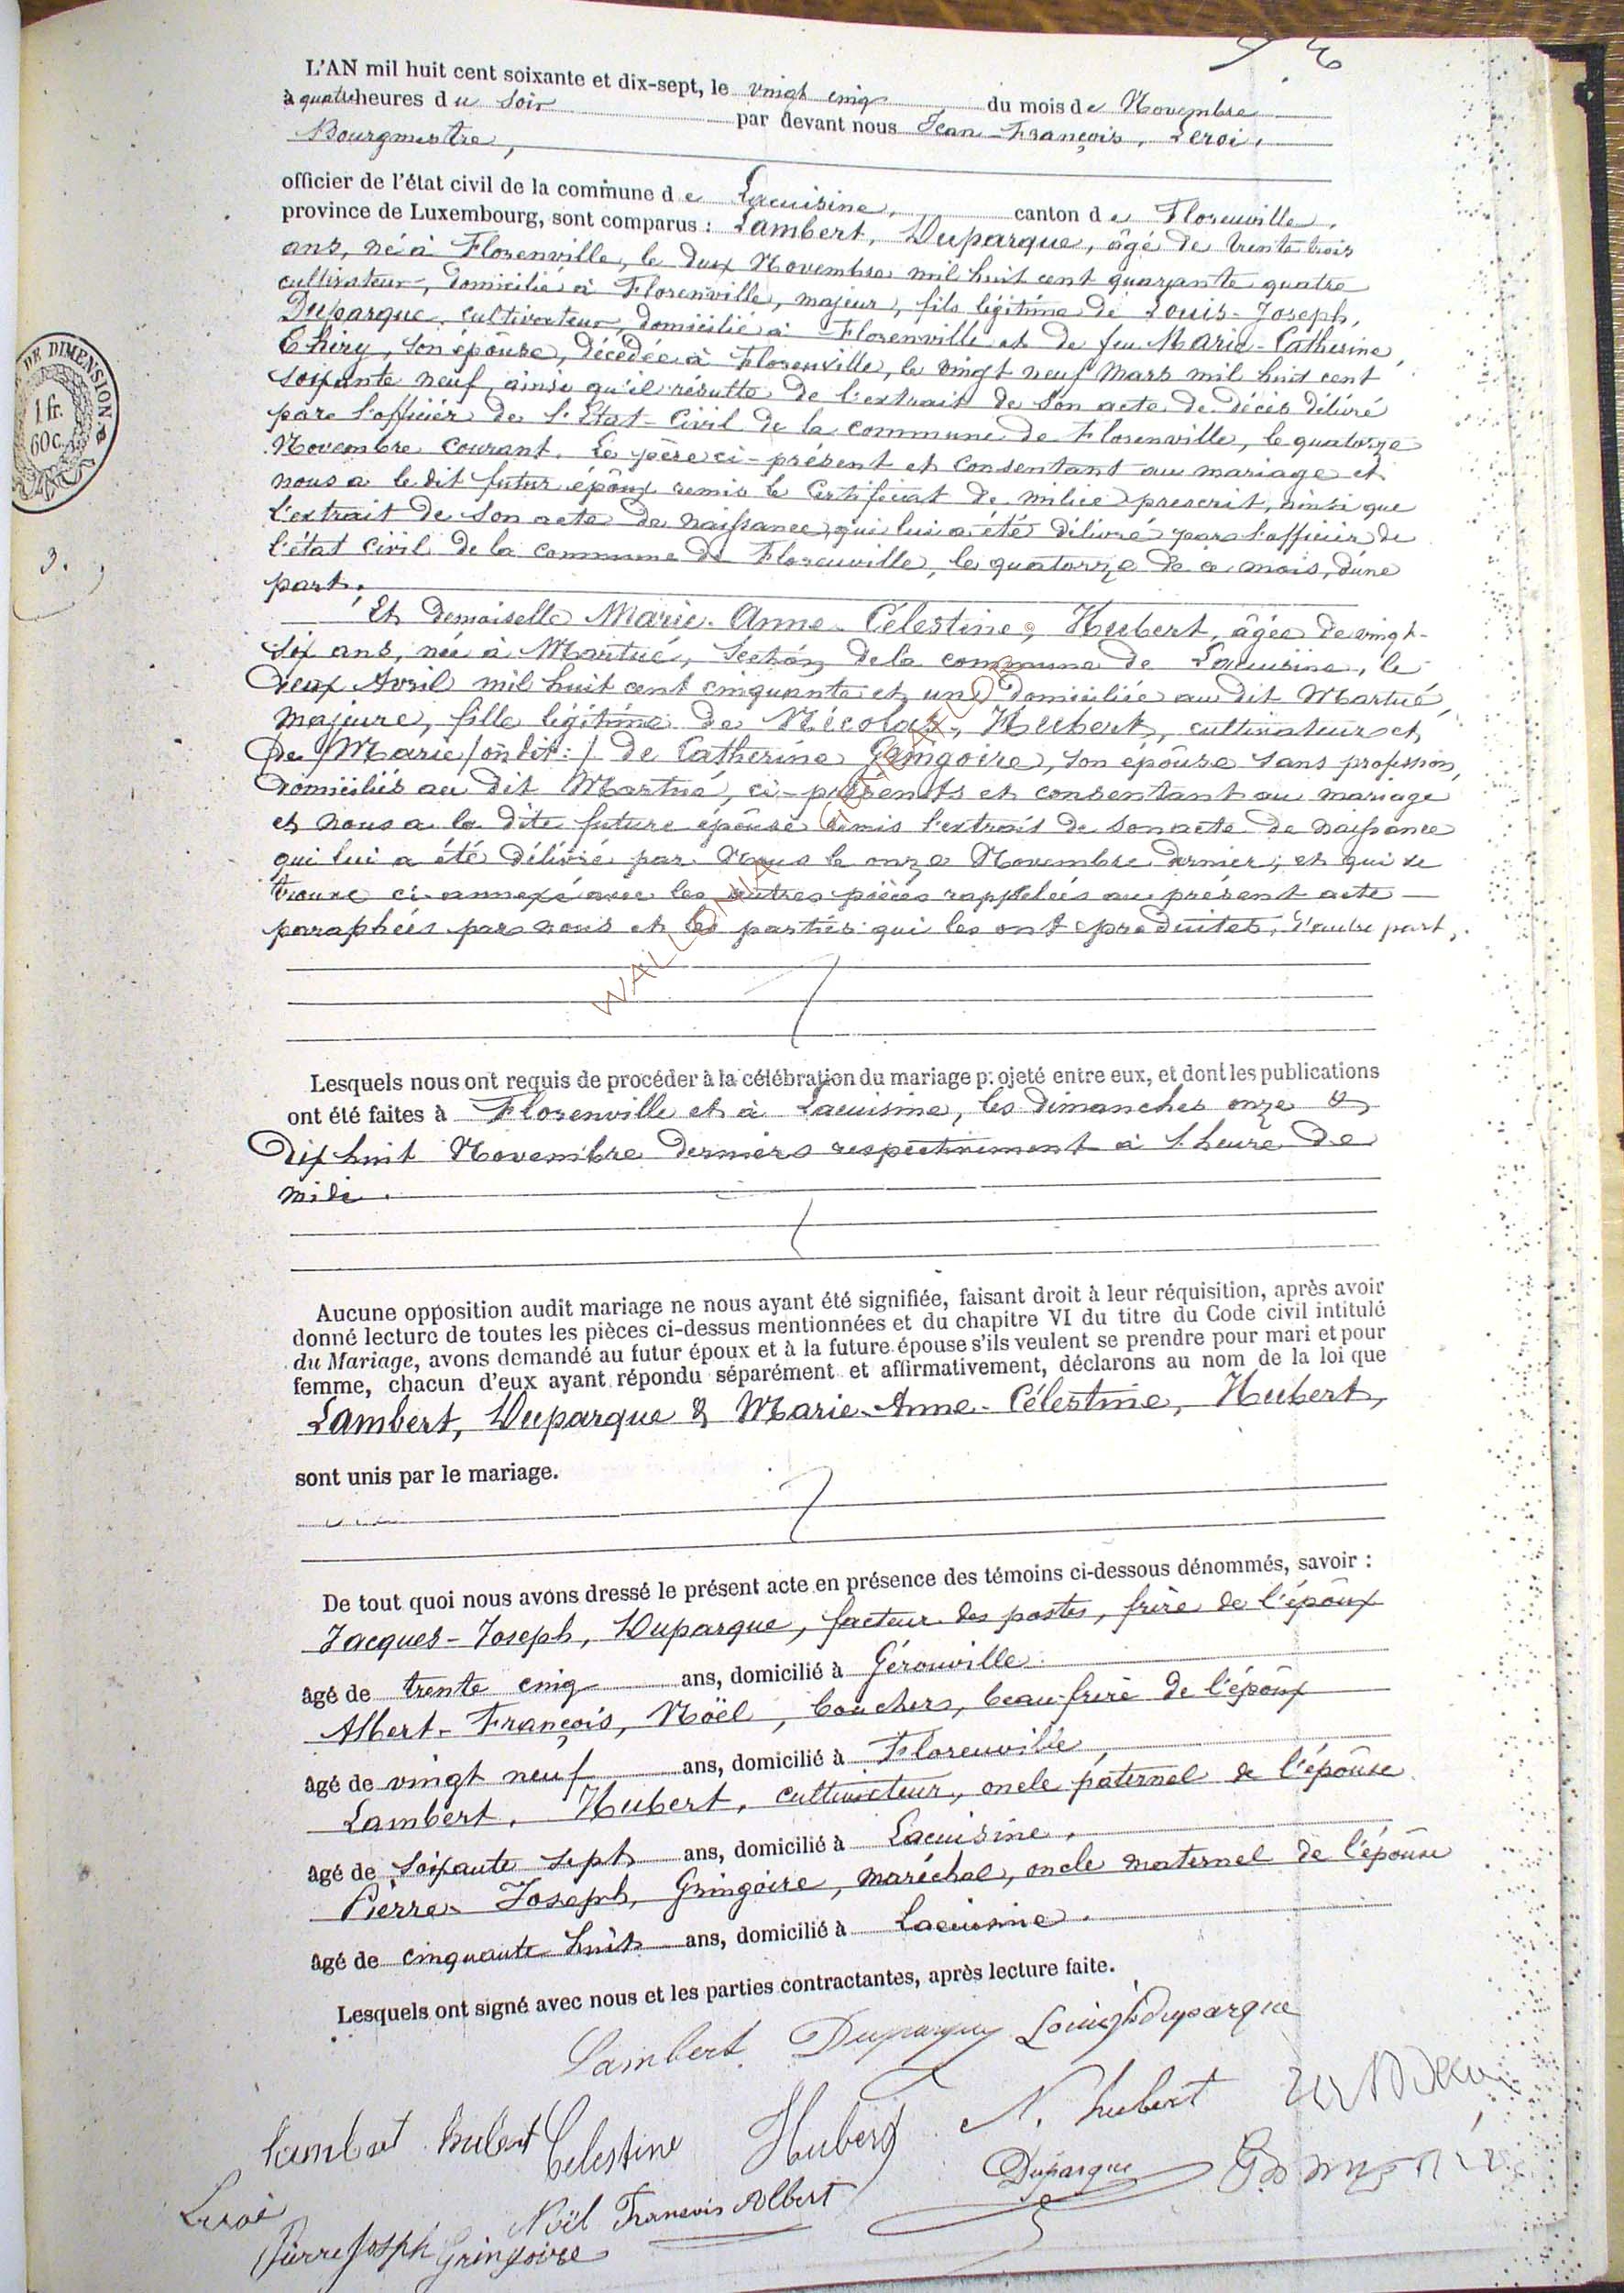 L'AN mil huit cent soixante et dix-sept, le vingt cinq du mois de Novembre
à quatre heures du soir par devant nous Jean-François, Leroi,
Bourgmestre,
officier de l'état civil de la commune de Lacuisine, canton de Florenville,
province de Luxembourg, sont comparus : Lambert, Duparque, âgé de trente trois
ans, né à Florenville, le deux Novembre mil huit cent quarante quatre
cultivateur, domicilié à Florenville, majeur, fils légitime de Louis-Joseph,
Duparque, cultivateur, domicilié à Florenville et de feu Marie-Catherine,
Thiry, son épouse, décédée à Florenville, le vingt neuf Mars mil huit cent
soixante neuf, ainsi qu'il résulte de l'extrait de son acte de décès délivré
par l'officier de l'Etat-Civil de la commune de Florenville, le quatorze
Novembre courant. Le père ci-présent et consentant au mariage et
nous a le dit futur époux remis le Certificat de milice prescrit, ainsi que
l'extrait de son acte de naissance, qui lui a été délivré par l'officier de
l'état civil de la commune de Florenville, le quatorze de ce mois, d'une
part.
Et demoiselle Marie-Anne-Célestine, Hubert, âgée de vingt-
six ans, née à Martué, Section de la commune de Lacuisine, le
deux Avril mil huit cent cinquante et un, domiciliée au dit Martué,
majeure, fille légitime de Nicolas, Hubert, cultivateur et
de Marie /on dit:/ de Catherine Gringoire, son épouse sans profession,
domiciliés au dit Martué, ci-présents et consentant au mariage
et nous a la dite future épouse remis l'extrait de son acte de naissance
qui lui a été délivré par Nous le onze Novembre dernier, et qui se
trouve ci-annexé avec les autres pièces rappelées au présent acte
paraphées par nous et les parties qui les ont produites, d'autre part,
WALLONIA GENEALOGY
Lesquels nous ont requis de procéder à la célébration du mariage projeté entre eux, et dont les publications
ont été faites à Florenville et à Lacuisine, les dimanches onze &
dix huit Novembre derniers respectivement à l'heure de
midi.
Aucune opposition audit mariage ne nous ayant été signifiée, faisant droit à leur réquisition, après avoir
donné lecture de toutes les pièces ci-dessus mentionnées et du chapitre VI du titre du Code civil intitulé
du Mariage, avons demandé au futur époux et à la future épouse s'ils veulent se prendre pour mari et pour
femme, chacun d'eux ayant répondu séparément et affirmativement, déclarons au nom de la loi que
Lambert, Duparque & Marie-Anne-Célestine, Hubert,
sont unis par le mariage.
De tout quoi nous avons dressé le présent acte en présence des témoins ci-dessous dénommés, savoir :
Jacques-Joseph, Duparque, facteur des postes, frère de l'époux
âgé de trente cinq ans, domicilié à Gérouville.
Albert-François, Noël, boucher, beau-frère de l'époux
âgé de vingt neuf ans, domicilié à Florenville,
Lambert, Hubert, cultivateur, oncle paternel de l'épouse
âgé de soixante sept ans, domicilié à Lacuisine.
Pierre-Joseph, Gringoire, maréchal, oncle maternel de l'épouse
âgé de cinquante huit ans, domicilié à Lacuisine.
Lesquels ont signé avec nous et les parties contractantes, après lecture faite.
Lambert Duparque Duparque
Lambert hubert Celestine Hubert N. hubert
Duparque
Leroi Noël François Albert
Pierre Joseph Gringoire
DE DIMENSION
1 fr.
60 c.
3.